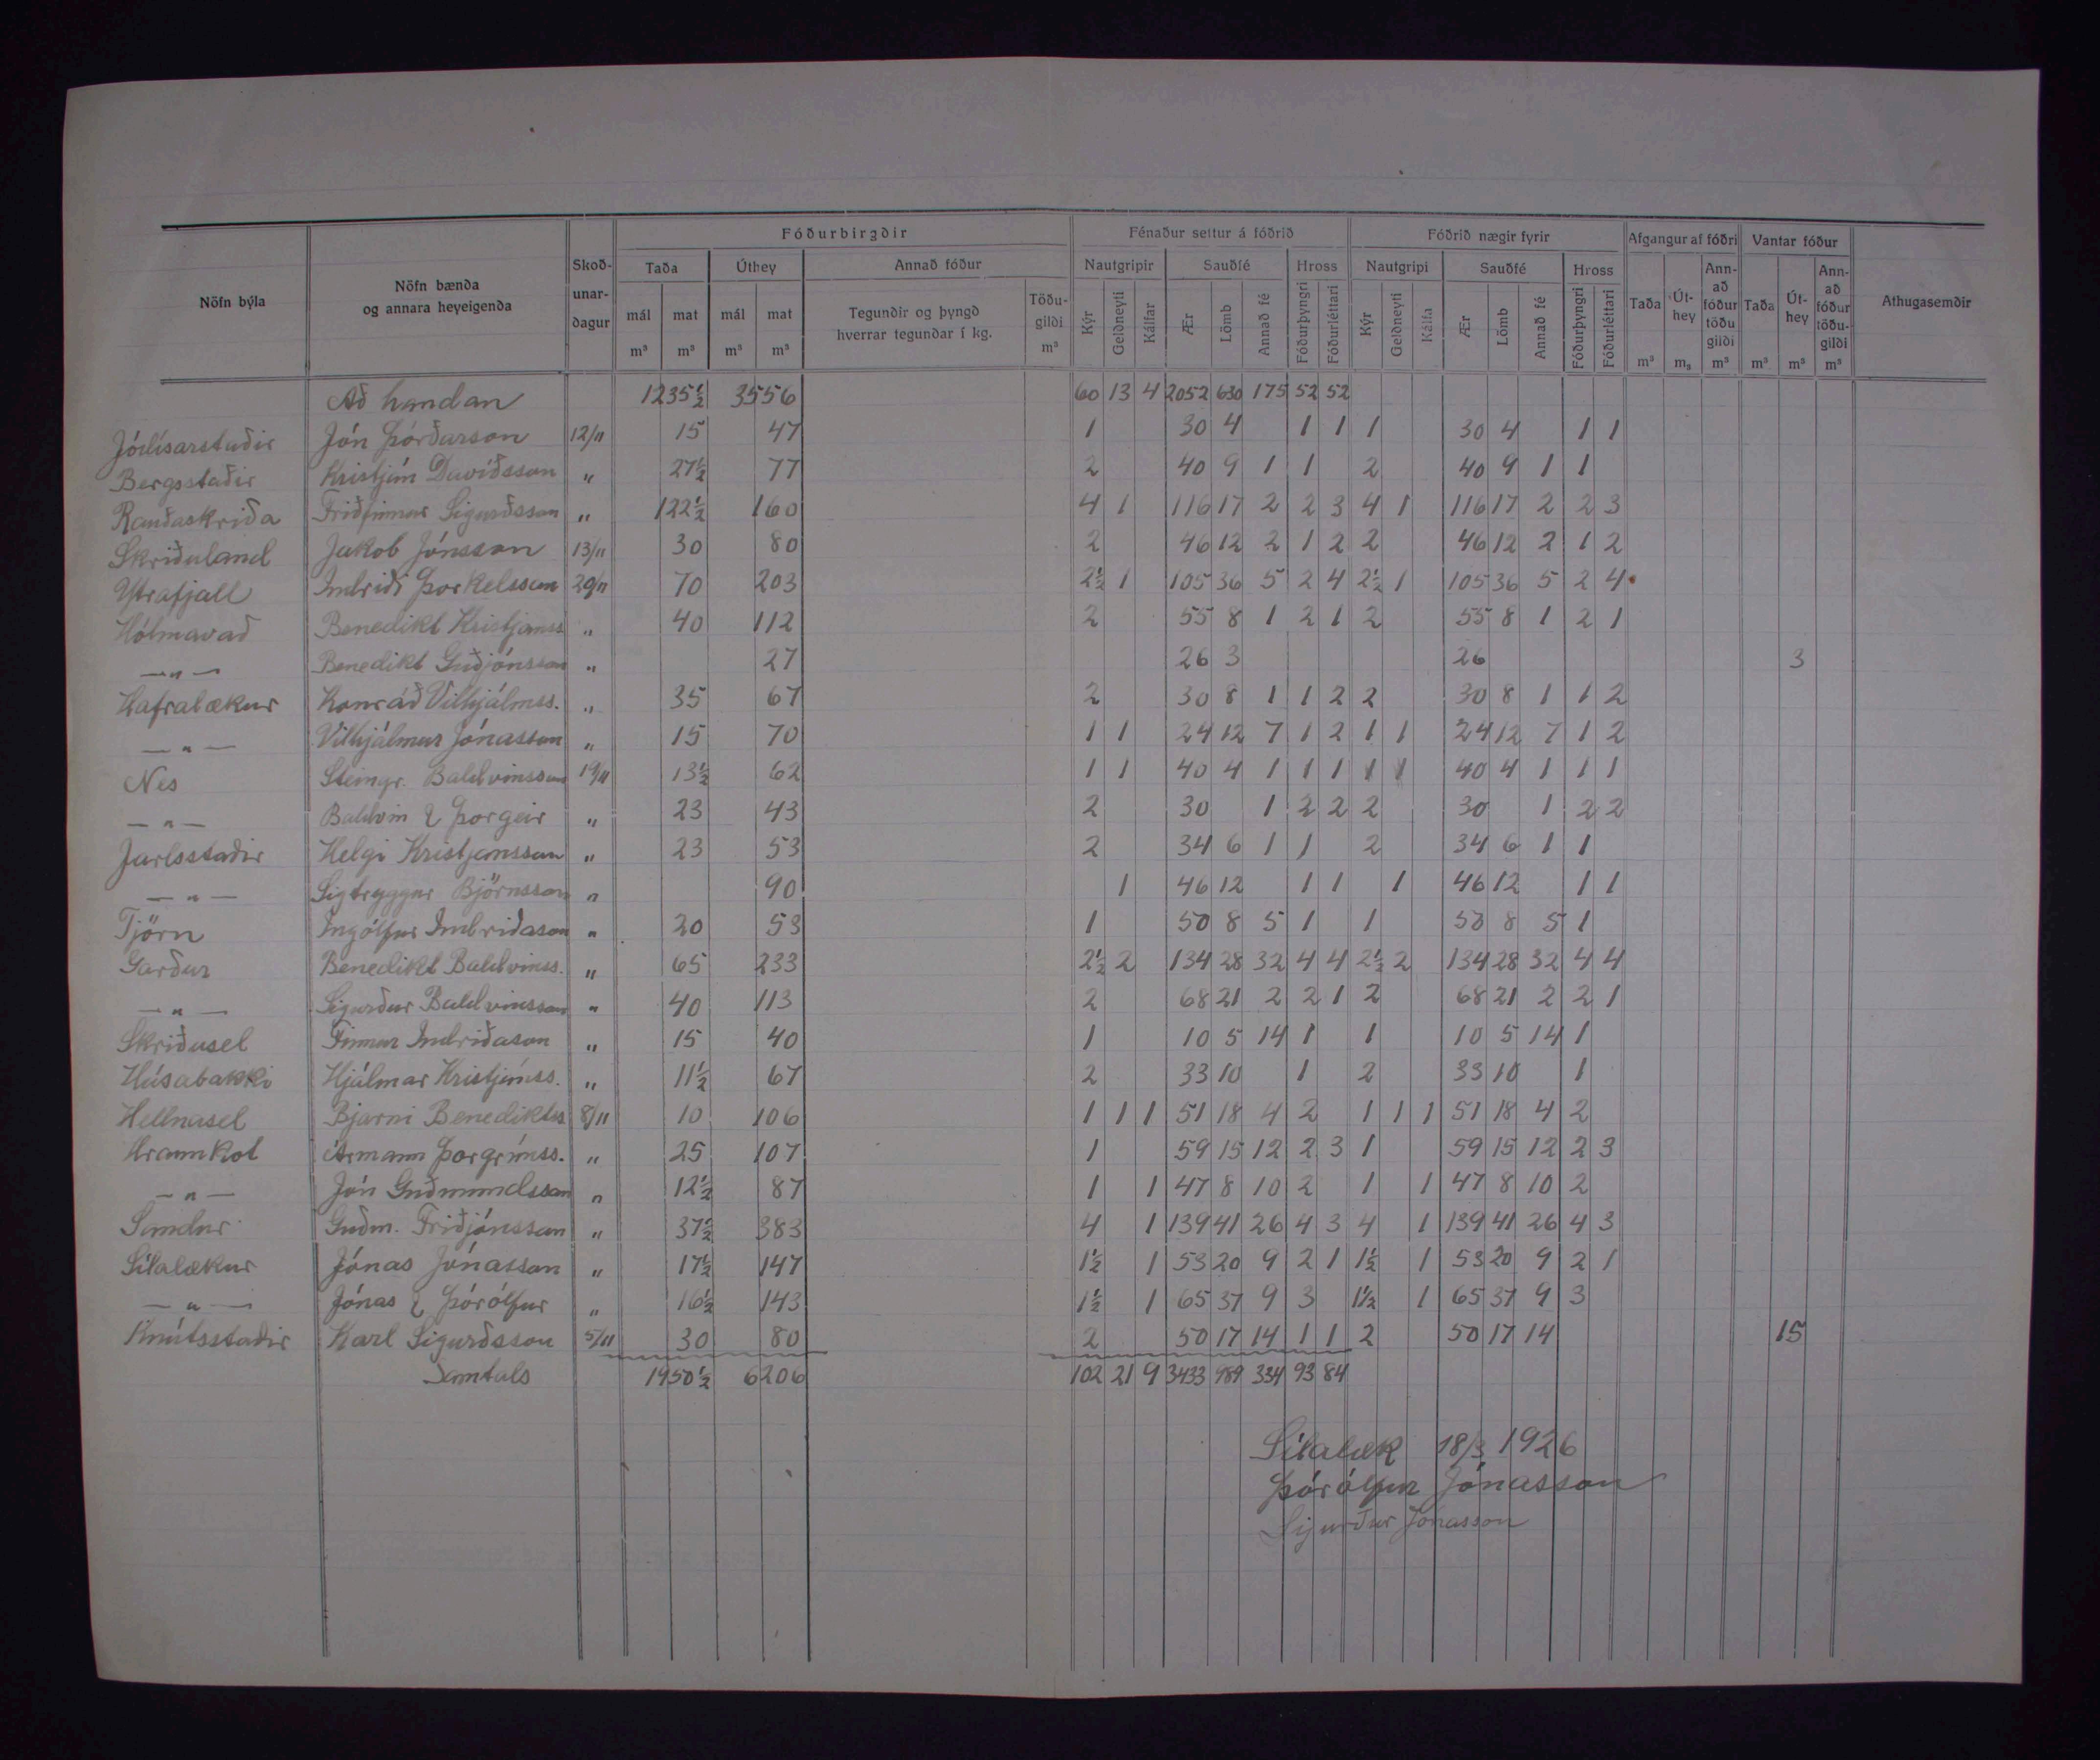 Nöfn býla | Nöfn bænda og annara heyeigenda | Skoðunardagur | Fóðurbirgðir | Fénaður settur á fóðrið | Fóðrið nægir fyrir | Afgangur af fóðri | Vantar fóður | Athugasemdir
Taða | Úthey | Annað fóður | Nautgripir | Sauðfé | Hross | Nautgripi | Sauðfé | Hross | Taða | Úthey | Annað fóður töðu gildi | Taða | Úthey | Annað fóður töðugildi
mál m³ | mat m³ | mál m³ | mat m³ | Tegundir og þyngd hverrar tegundar í kg. | Töðugildi m³ | Kýr | Geldneyti | Kálfar | Ær | Lömb | Annað fé | Fóðurþyngri | Fóðurléttari | Kýr | Geldneyti | Kálfa | Ær | Lömb | Annað fé | Fóðurþyngri | Fóðurléttari | m³ | m₃ | m³ | m³ | m³ | m³
Að handan 1235½ 3556 60 13 4 2052 630 175 52 52
Jódísarstaðir Jón Þórðarson 12/11 15 47 1 30 4 1 1 1 30 4 1 1
Bergsstaðir Kristján Davíðsson " 27½ 77 2 40 9 1 1 2 40 9 1 1
Rauðaskriða Friðfinnur Sigurðsson " 122½ 160 4 1 116 17 2 2 3 4 1 116 17 2 2 3
Skriðuland Jakob Jónsson 13/11 30 80 2 46 12 2 1 2 2 46 12 2 1 2
Ytrafjall Indriði Þorkelsson 20/11 70 203 2½ 1 105 36 5 2 4 2½ 1 105 36 5 2 4
Hólmavað Benedikt Kristjánss " 40 112 2 55 8 1 2 1 2 55 8 1 2 1
— " — Benedikt Guðjónsson " 27 26 3 26 3
Hafralækur Konráð Vilhjálmss. " 35 67 2 30 8 1 1 2 2 30 8 1 1 2
— " — Vilhjálmur Jónasson " 15 70 1 1 24 12 7 1 2 1 1 24 12 7 1 2
Nes Steingr. Baldvinsson 19/11 13½ 62 1 1 40 4 1 1 1 1 1 40 4 1 1 1
— " — Baldvin & Þorgeir " 23 43 2 30 1 2 2 2 30 1 2 2
Jarlsstaðir Helgi Kristjánsson " 23 53 2 34 6 1 1 2 34 6 1 1
— " — Sigtryggur Björnsson " 90 1 46 12 1 1 1 46 12 1 1
Tjörn Ingólfur Indriðason " 20 53 1 50 8 5 1 1 50 8 5 1
Garður Benedikt Baldvinss. " 65 233 2½ 2 134 28 32 4 4 2½ 2 134 28 32 4 4
— " — Sigurður Baldvinsson " 40 113 2 68 21 2 2 1 2 68 21 2 2 1
Skriðusel Finnur Indriðason " 15 40 1 10 5 14 1 1 10 5 14 1
Húsabakki Hjálmar Kristjánss. " 11½ 67 2 33 10 1 2 33 10 1
Hellnasel Bjarni Benediktss 8/11 10 106 1 1 1 51 18 4 2 1 1 1 51 18 4 2
Hraunkot Ármann Þorgrímss. " 25 107 1 59 15 12 2 3 1 59 15 12 2 3
— " — Jón Guðmundsson " 12½ 87 1 1 47 8 10 2 1 1 47 8 10 2
Sandur Guðm. Friðjónsson " 37½ 383 4 1 139 41 26 4 3 4 1 139 41 26 4 3
Sílalækur Jónas Jónasson " 17½ 147 1½ 1 53 20 9 2 1 1½ 1 53 20 9 2 1
— " — Jónas & Þórólfur " 16½ 143 1½ 1 65 37 9 3 1½ 1 65 37 9 3
Knútsstaðir Karl Sigurðsson 5/11 30 80 2 50 17 14 1 1 2 50 17 14 15
Samtals 1950½ 6206 102 21 9 3433 989 334 93 84
Sílalæk 18/3 1926
Þórólfur Jónasson
Sigurður Jónasson